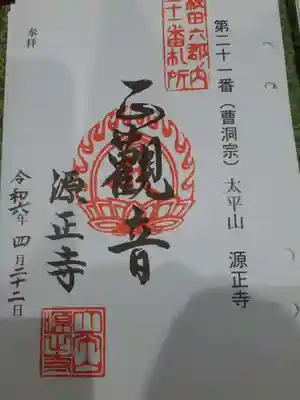 第二十一番（曹洞宗）太平山　源正寺
秋田六郡内
二十一番札所
奉拝
正觀音
源正寺
令和六年四月二十二日